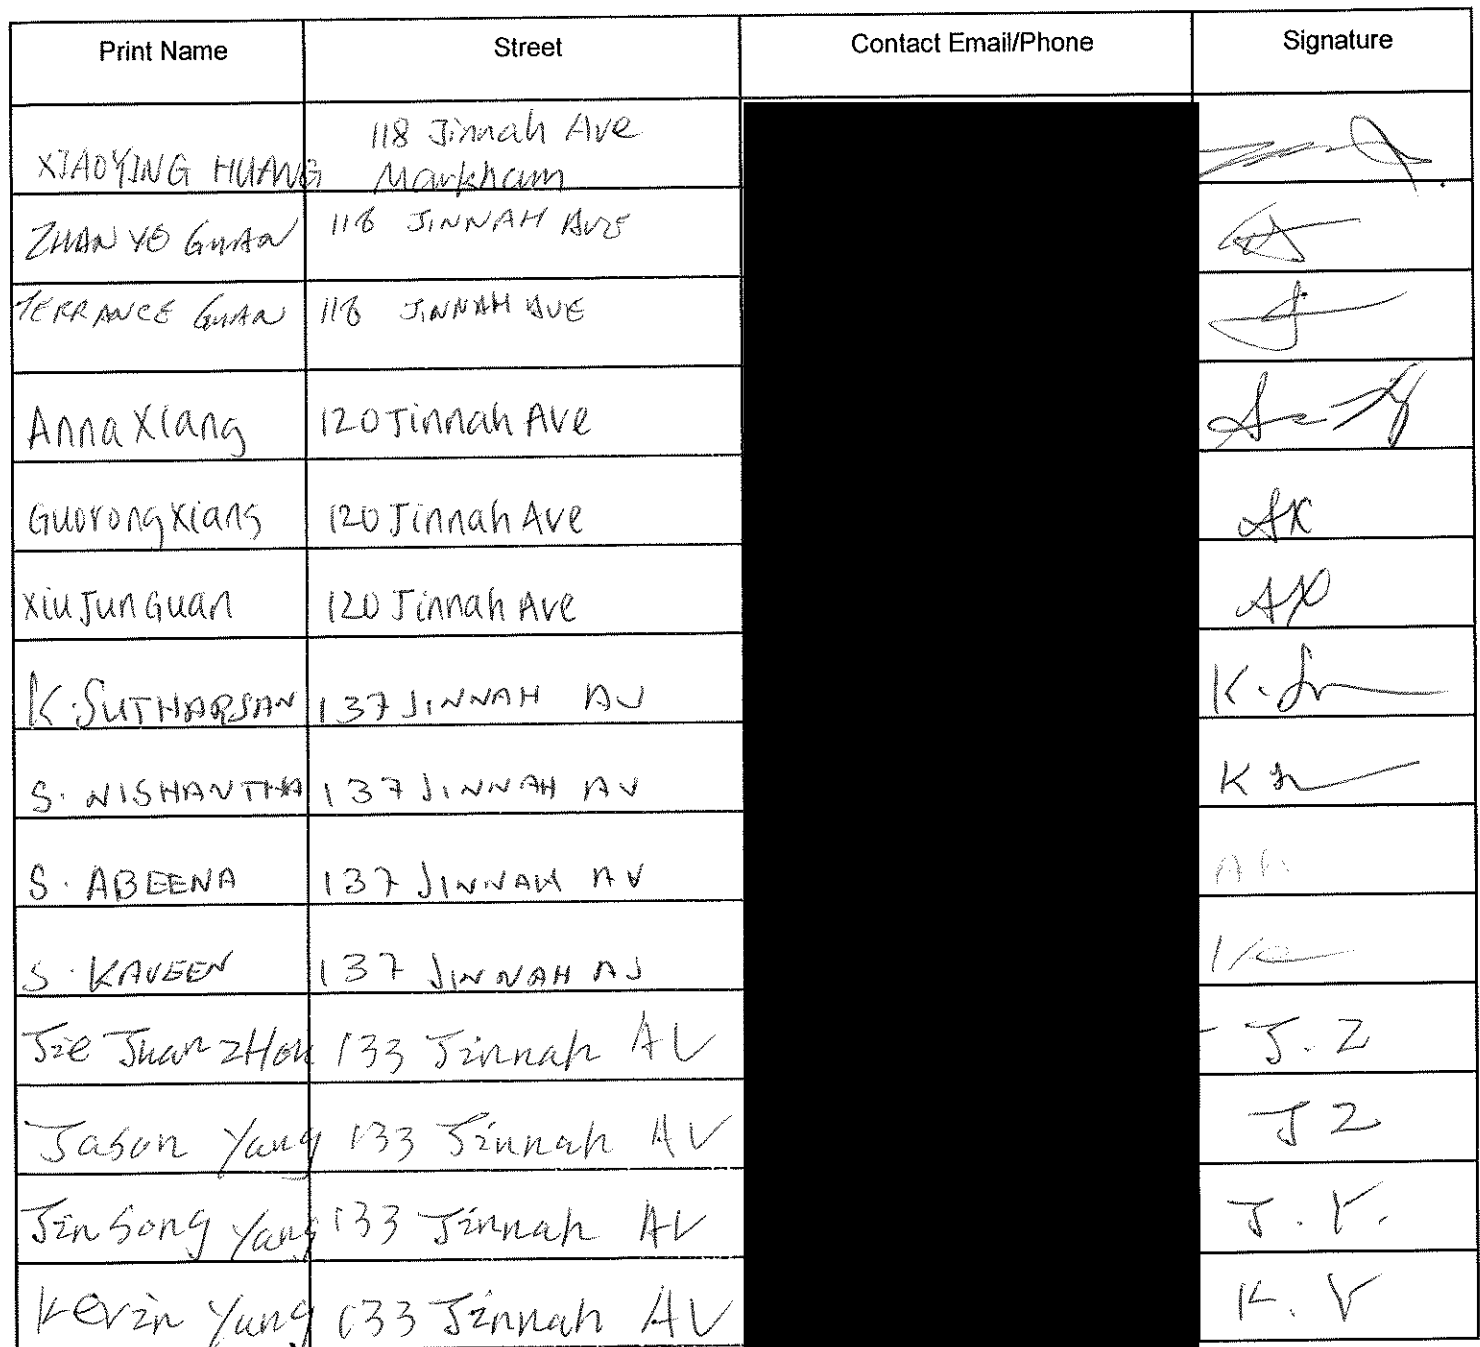 Print Name Street Contact Email/Phone Signature
118 Jinnah Ave
XIAOYING HUANG Markham
ZHAN YO GUAN 118 JINNAH AVE
TERRANCE GUAN 118 JINNAH AVE
Anna Xiang 120 Jinnah Ave
Guorong Xiang 120 Jinnah Ave AX
Xiu Jun Guan 120 Jinnah Ave AX
K. SUTHARSAN 137 JINNAH AV
S. NISHANTHA 137 JINNAH AV
S. ABEENA 137 JINNAH AV
S. KAVEEN 137 JINNAH AV
Jie Juan ZHou 133 Jinnah AV J. Z
Jason Yang 133 Jinnah AV J Z
Jin Song Yang 133 Jinnah AV J. Y.
Kevin Yang 133 Jinnah AV K. Y